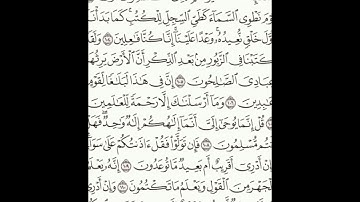 وْمَ نَطْوِى ٱلسَّمَآءَ كَطَىِّ ٱلسِّجِلِّ لِلْكُتُبِ ۚ كَمَا بَدَأْنَآ
وَّلَ خَلْقٍ نُّعِيدُهُۥ ۚ وَعْدًا عَلَيْنَآ ۚ إِنَّا كُنَّا فَٰعِلِينَ ١٠٤
كَتَبْنَا فِى ٱلزَّبُورِ مِنۢ بَعْدِ ٱلذِّكْرِ أَنَّ ٱلْأَرْضَ يَرِثُهَا
عِبَادِىَ ٱلصَّٰلِحُونَ ١٠٥ إِنَّ فِى هَٰذَا لَبَلَٰغًا لِّقَوْمٍ
عَٰبِدِينَ ١٠٦ وَمَآ أَرْسَلْنَٰكَ إِلَّا رَحْمَةً لِّلْعَٰلَمِينَ
١٠٧ قُلْ إِنَّمَا يُوحَىٰٓ إِلَىَّ أَنَّمَآ إِلَٰهُكُمْ إِلَٰهٌ وَٰحِدٌ ۖ فَهَلْ
نتُم مُّسْلِمُونَ ١٠٨ فَإِن تَوَلَّوْا۟ فَقُلْ ءَاذَنتُكُمْ عَلَىٰ سَوَآءٍ
إِنْ أَدْرِىٓ أَقَرِيبٌ أَم بَعِيدٌ مَّا تُوعَدُونَ ١٠٩ إِنَّهُۥ يَعْلَمُ
لْجَهْرَ مِنَ ٱلْقَوْلِ وَيَعْلَمُ مَا تَكْتُمُونَ ١١٠ وَإِنْ أَدْرِى